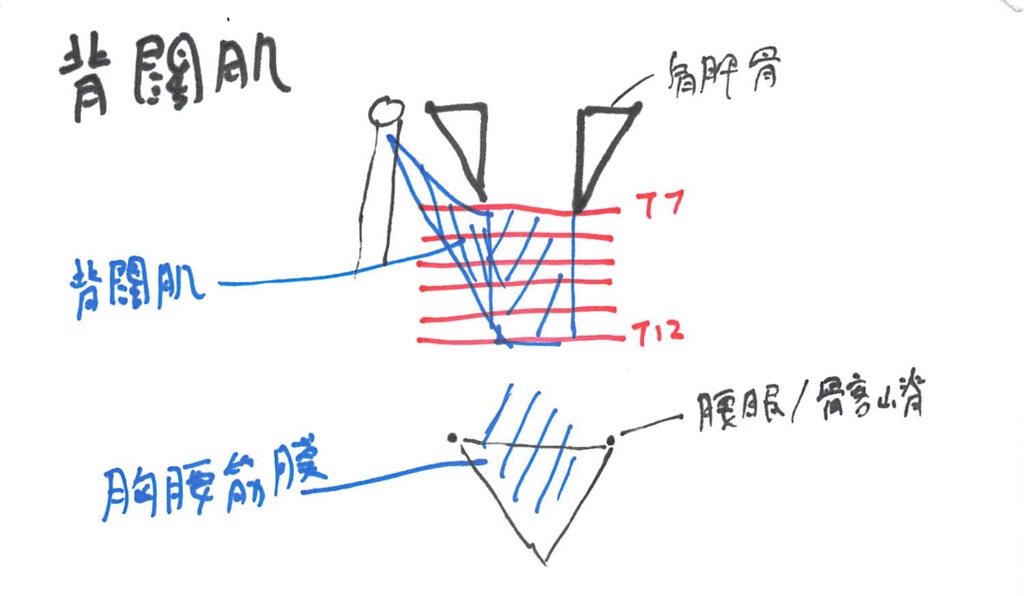 背闊肌
肩胛骨
T7
背闊肌
T12
腰眼/髂嵴
胸腰筋膜